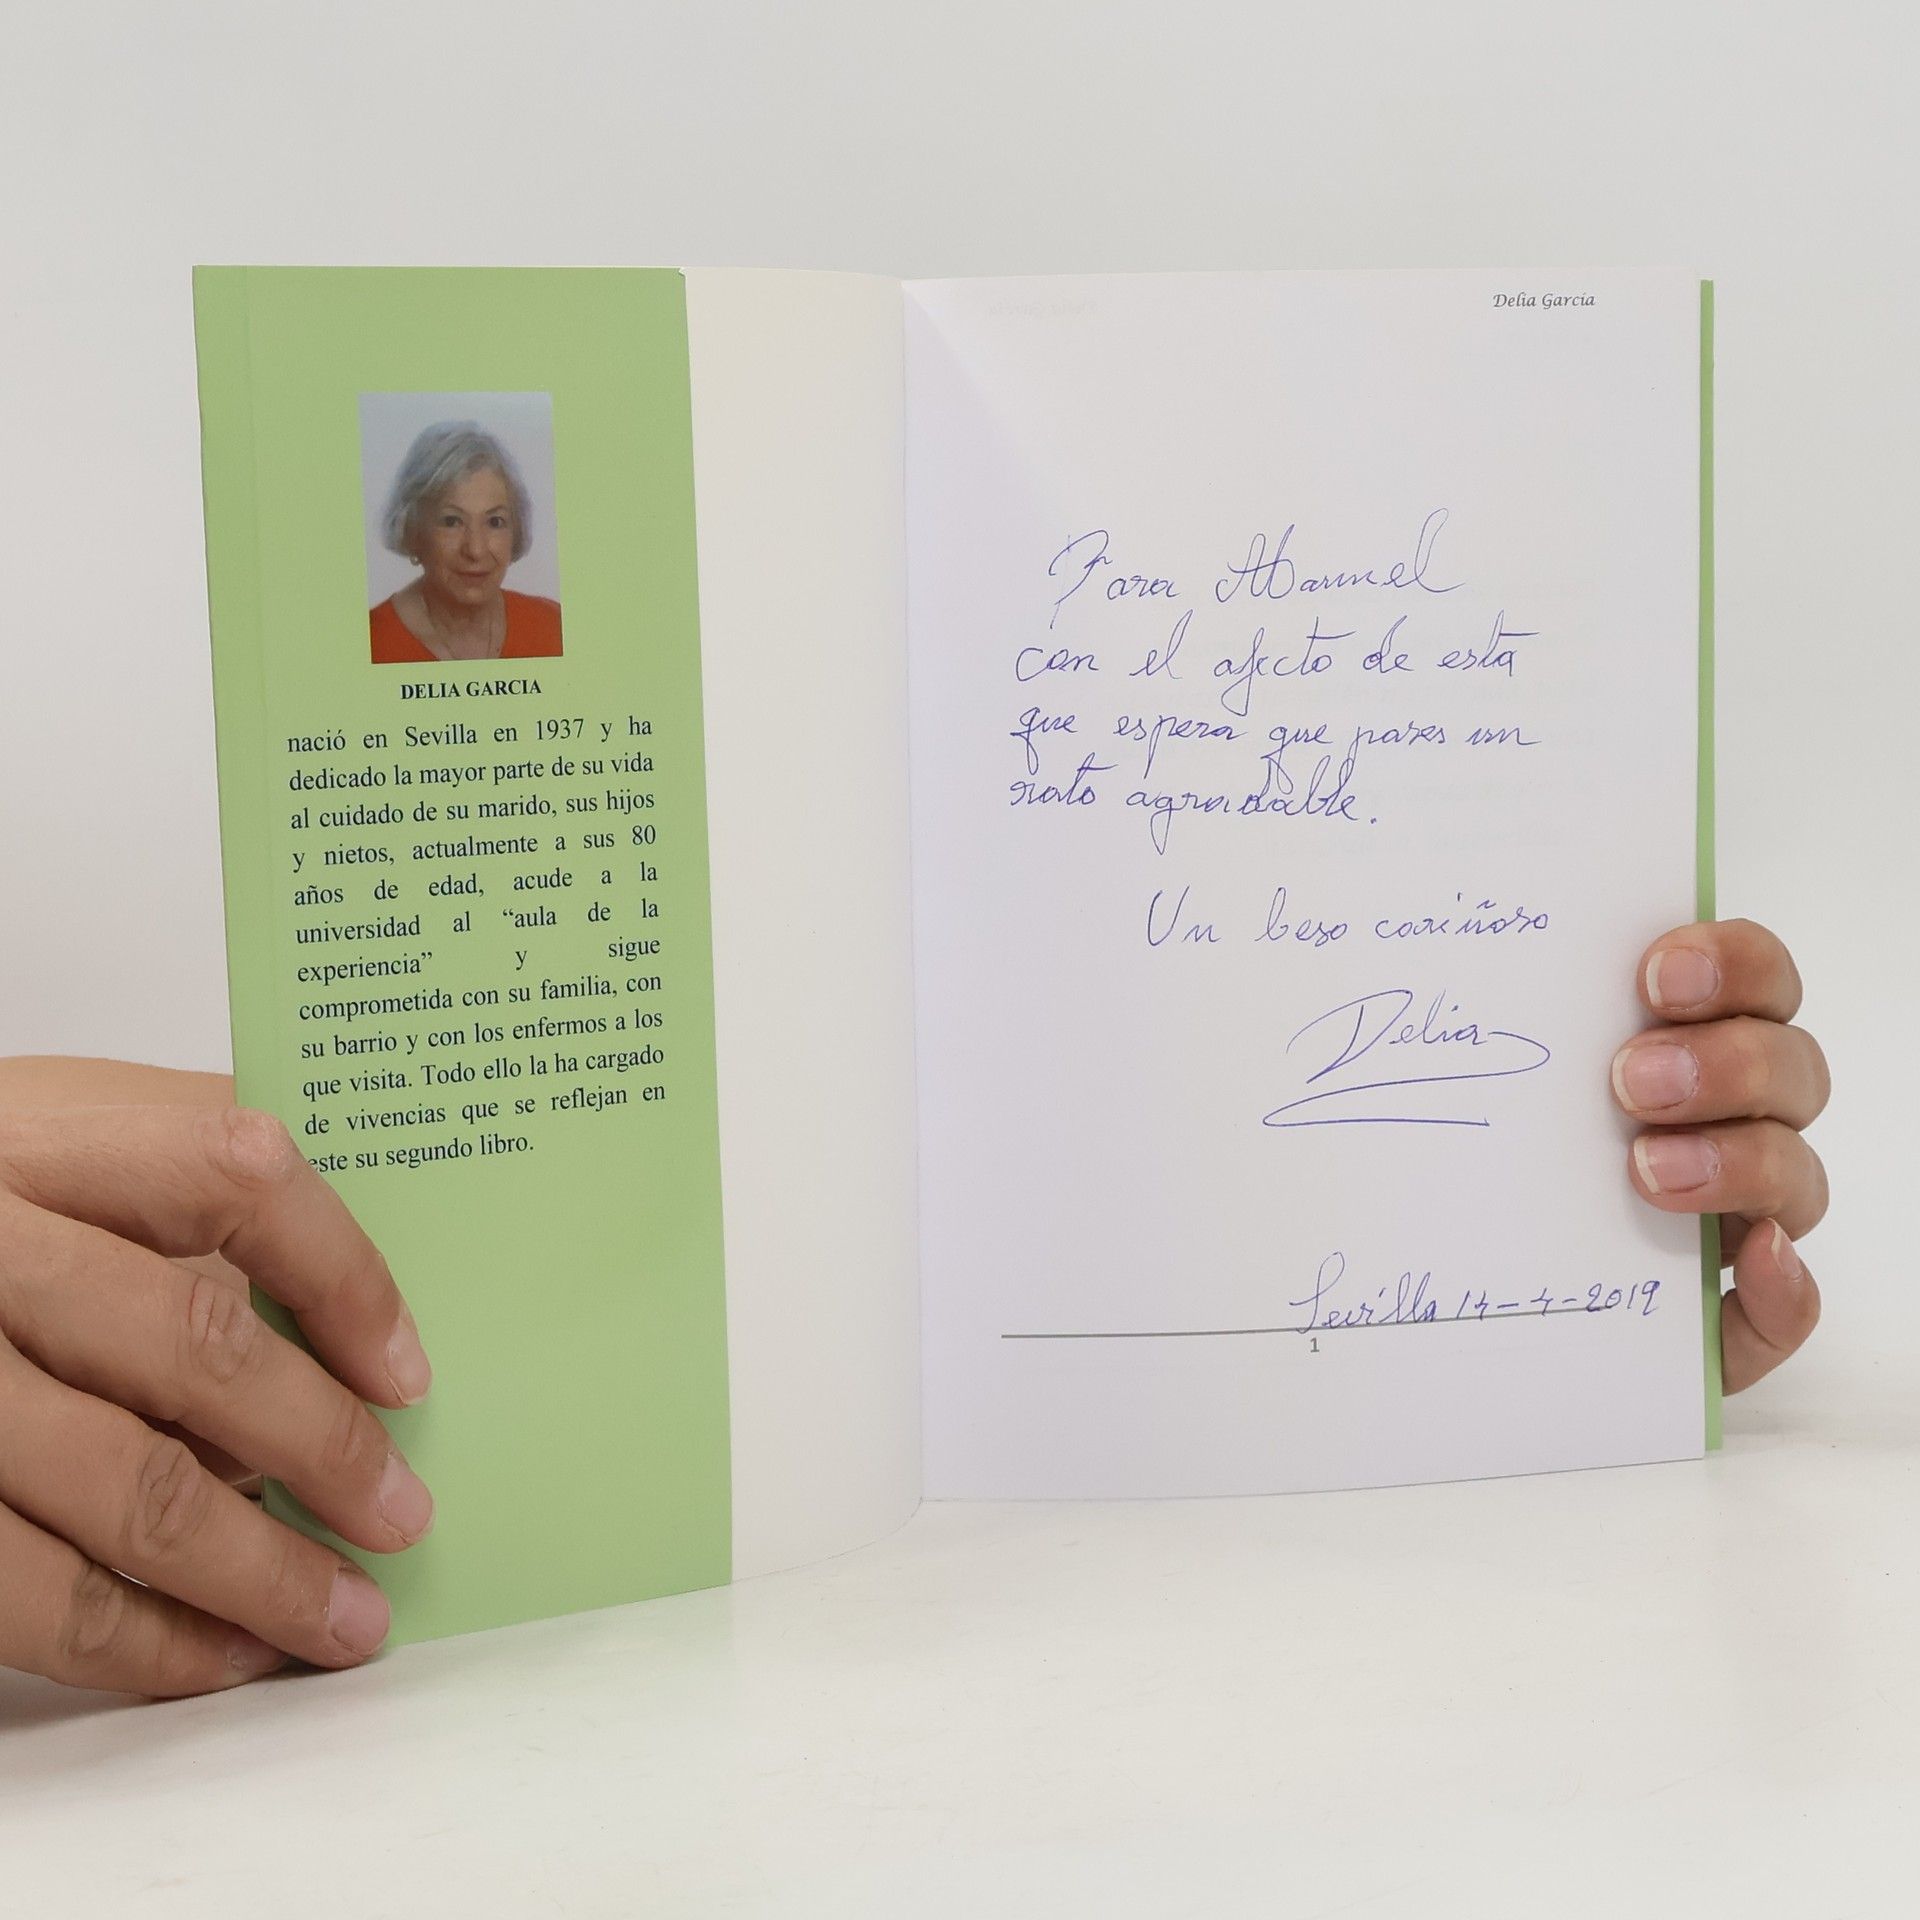 DELIA GARCIA
nació en Sevilla en 1937 y ha
dedicado la mayor parte de su vida
al cuidado de su marido, sus hijos
y nietos, actualmente a sus 80
años de edad, acude a la
universidad al “aula de la
experiencia” y sigue
comprometida con su familia, con
su barrio y con los enfermos a los
que visita. Todo ello la ha cargado
de vivencias que se reflejan en
este su segundo libro.
Delia García
Para Manuel
con el afecto de esta
que espera que pases un
rato agradable.
Un beso cariñoso
Delia
Sevilla 14-4-2019
1